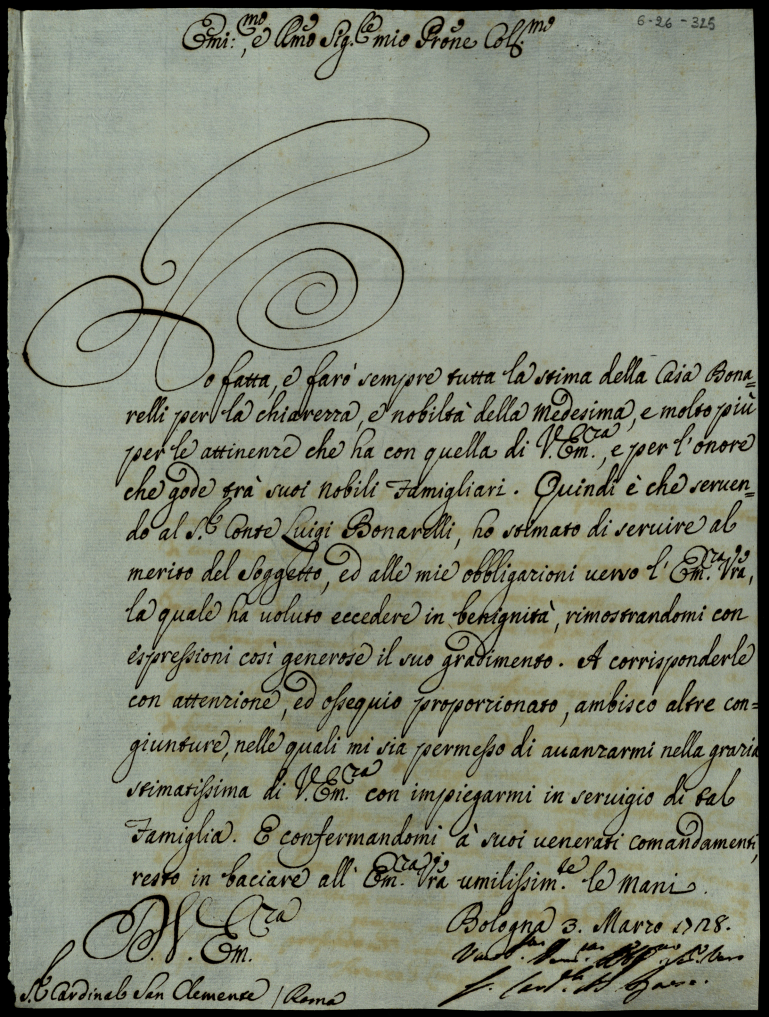 6-26-325
Emi:mo, e Rmo Sig.re mio Prōne Col.mo
Ho fatta, e farò sempre tutta la stima della Casa Bona=
relli per la chiarezza, e nobiltà della medesima, e molto più
per le attinenze che ha con quella di V. Em.ra, e per l'onore
che gode trà suoi nobili Famigliari. Quindi è che seruen=
do al S.r Conte Luigi Bonarelli, ho stimato di seruire al
merito del Soggetto, ed alle mie obbligazioni uerso l'Em.ra Vrā,
la quale ha voluto eccedere in benignità, rimostrandomi con
espressioni così generose il suo gradimento. A corrisponderle
con attenzione, ed ossequio proporzionato, ambisco altre con=
giunture, nelle quali mi sia permesso di auanzarmi nella grazia
stimatissima di V. Em.ra con impiegarmi in seruigio di tal
Famiglia. E confermandomi à suoi uenerati comandamenti,
resto in bacciare all' Em.ra Vrā umilissim.te le mani.
Bologna 3. Marzo 1728.
D. V. Em.ra
S.r Cardinal San Clemente / Roma